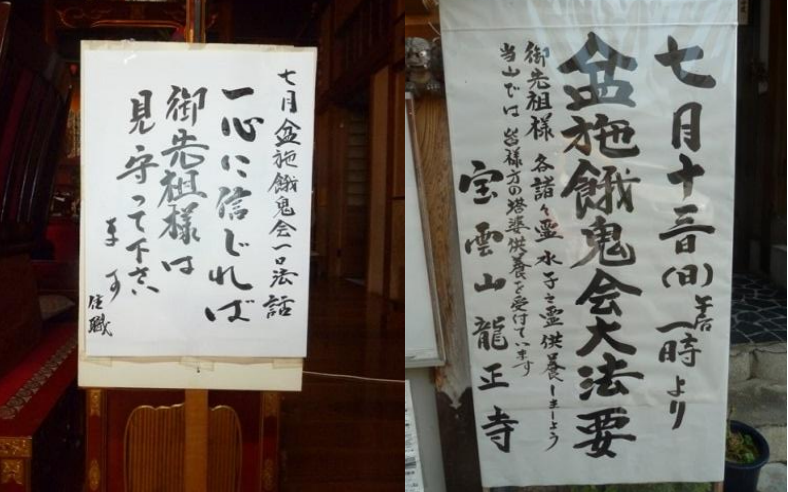 七月盆施餓鬼会一口法話
一心に信じれば
御先祖様は
見守って下さい
ます
住職
七月十三日(日)午后一時より
盆施餓鬼会大法要
御先祖様各諸々霊水子之霊供養しましょう
当山では皆様方の塔婆供養を受付ています
宝雲山龍正寺